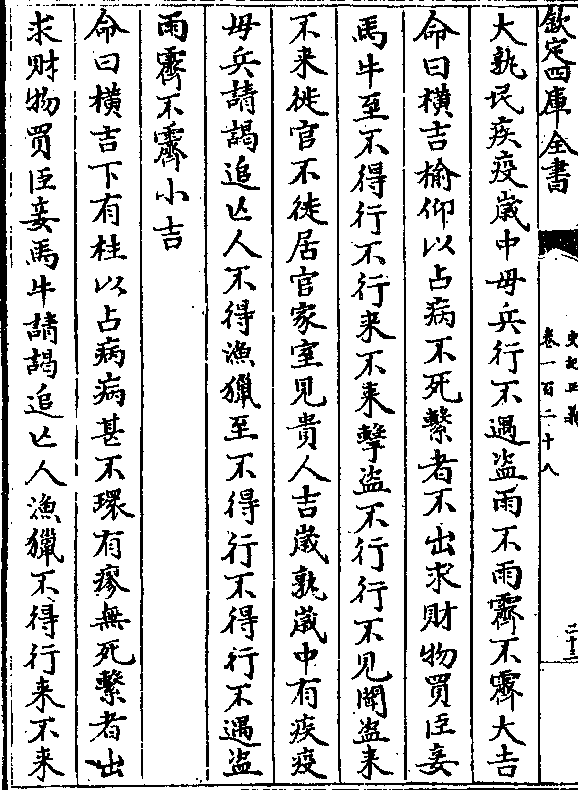 欽定四庫全書
史記正義
卷一百二十八
大孰民疾疫歲中毋兵行不遇盜雨不雨霽不霽大吉
命曰橫吉榆仰以占病不死繫者不出求財物買臣妾
馬牛至不得行不行来不来擊盜不行行不見聞盜来
不来徙官不徙居官家室見貴人吉歲孰歲中有疾疫
毋兵請謁追亡人不得漁獵至不得行不得行不遇盜
雨霽不霽小吉
命曰橫吉下有柱以占病病甚不環有瘳無死繫者出
求財物買臣妾馬牛請謁追亡人漁獵不得行来不来